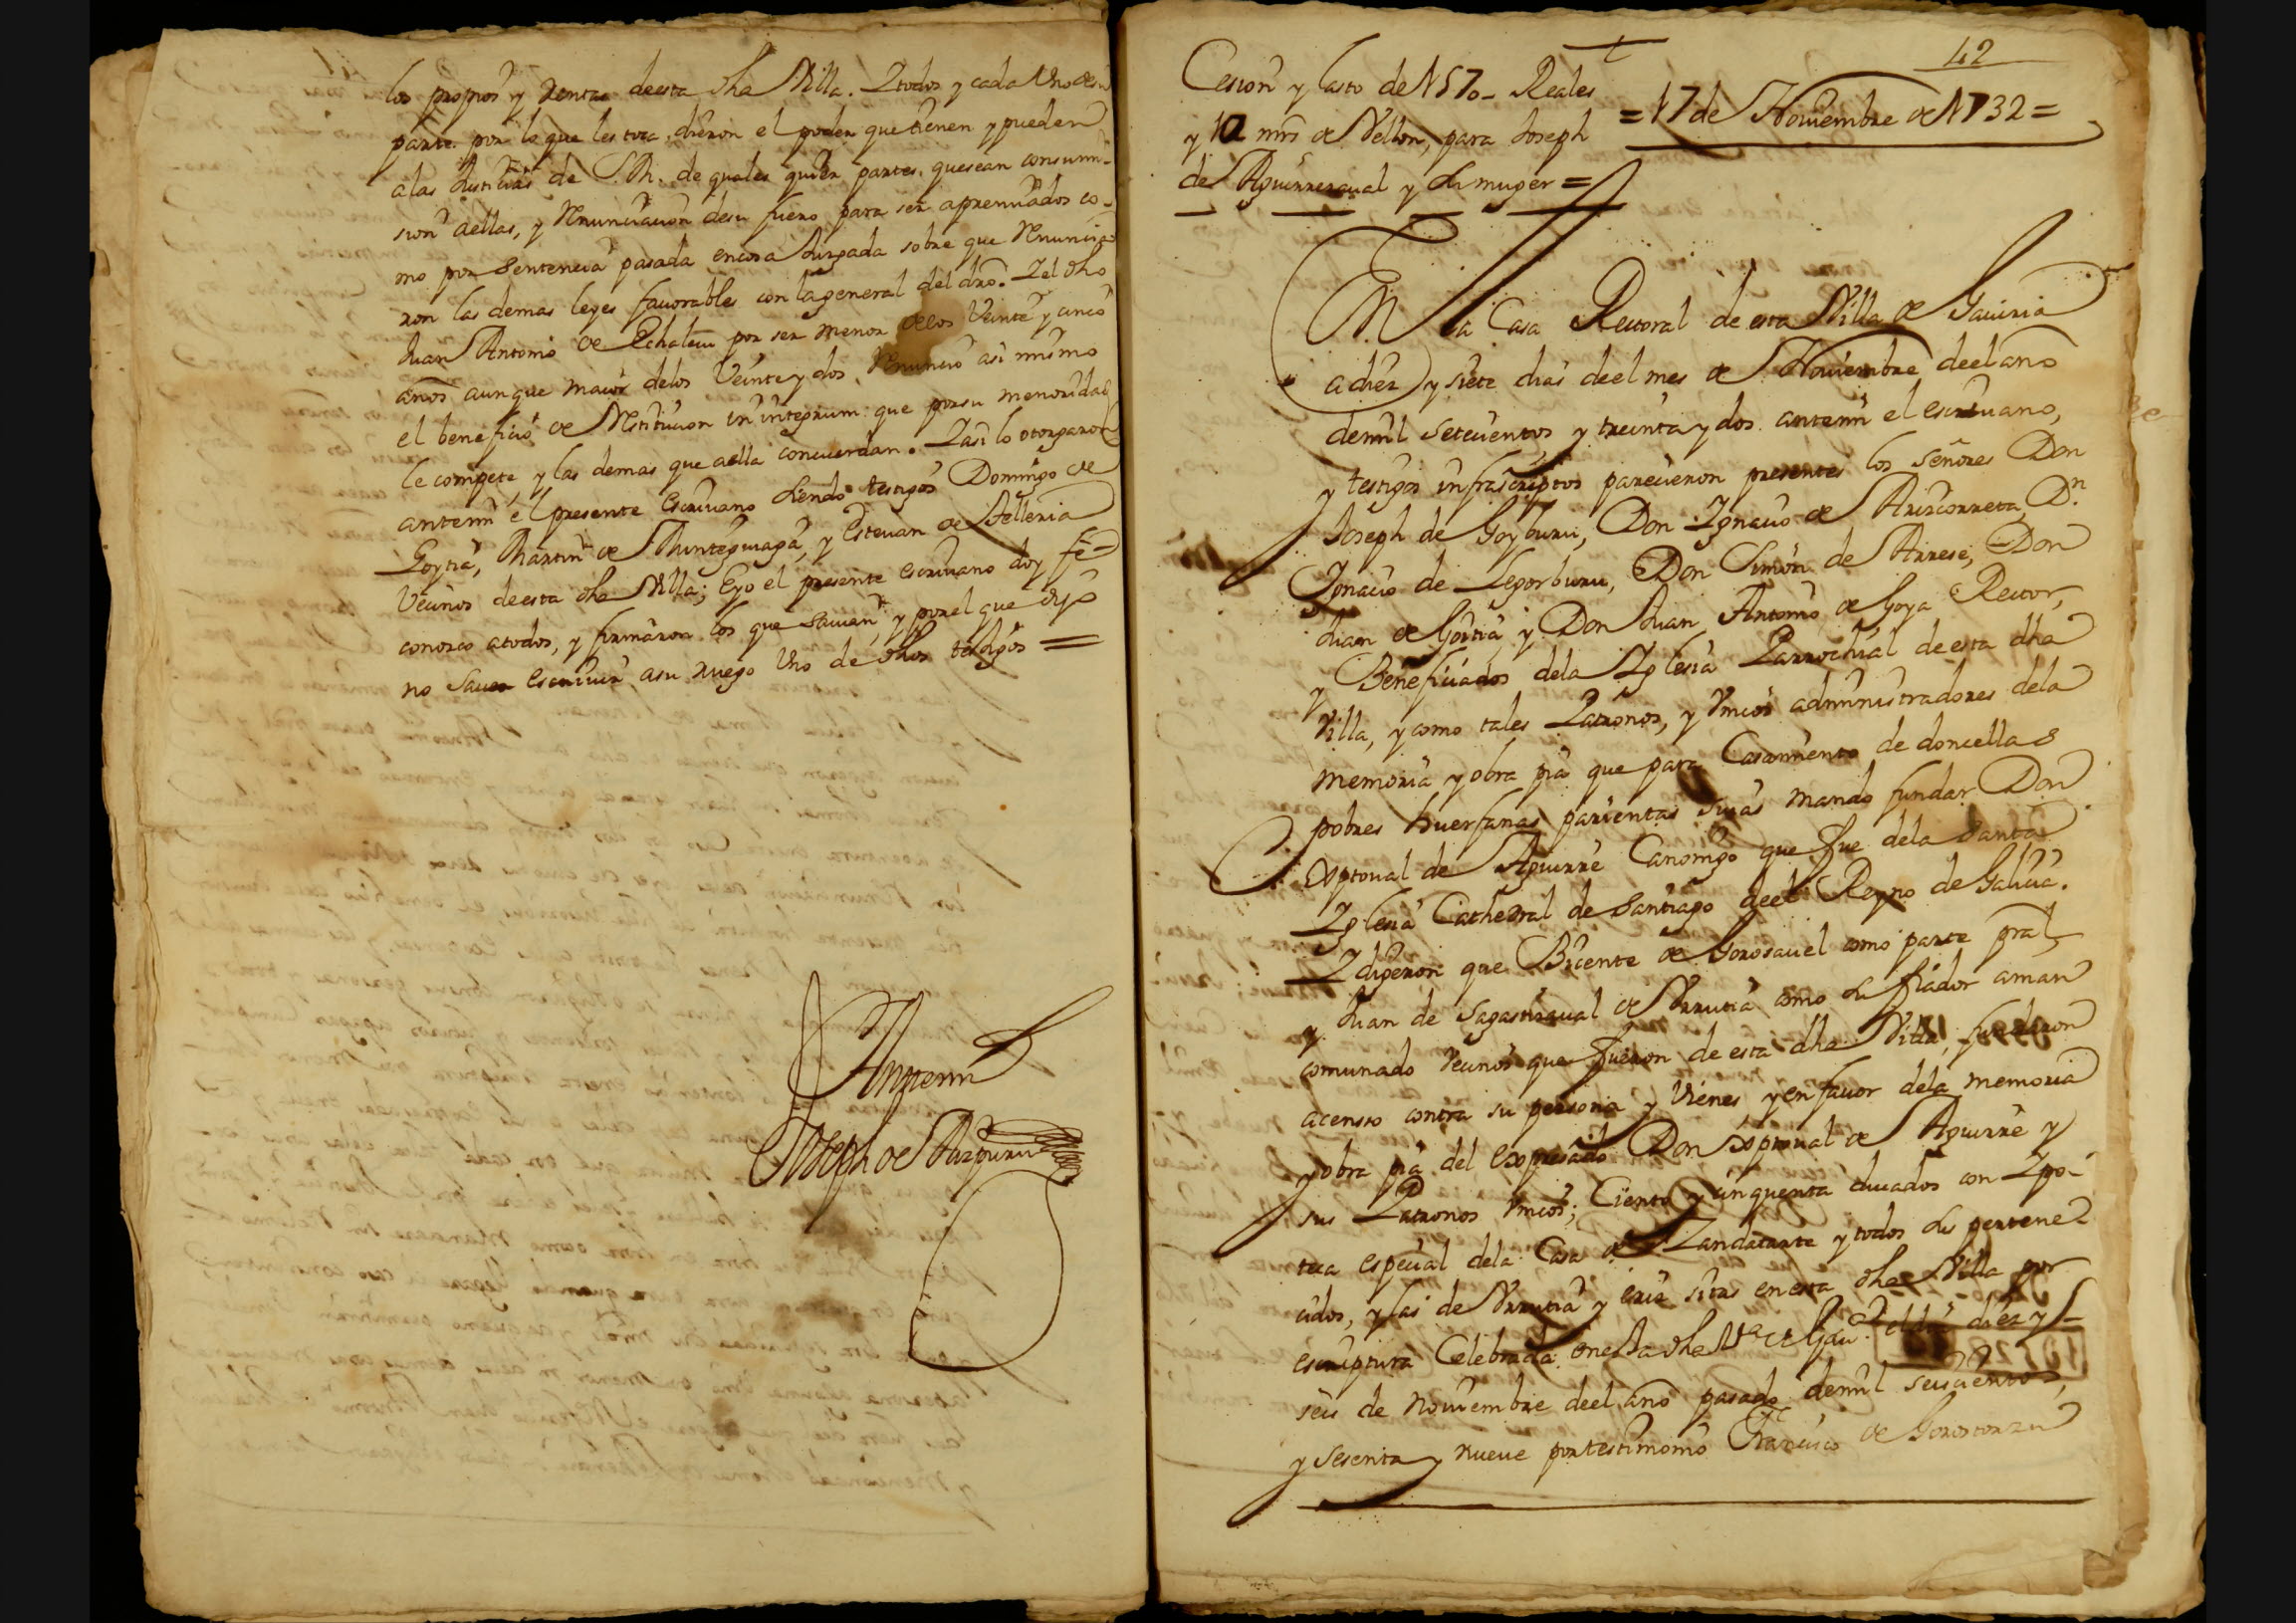 los propios y rentas deesta dha Villa. Y todos y cada Uno desu
parte por lo que les toca, dieron el poder que tienen y pueden
alas Justicias de S. M. de quales quier partes, quesean consumi-
sion aellas, y Renunciacion desu fuero para ser apremiados co-
mo por Sentencia pasada encosa Juzgada sobre que Renuncia
ron las demas leyes fauorables con lageneral del dro. Y el dho
Juan Antonio de Echalecu por ser menor delos Veinte y cinco
años aunque maior delos Veinte y dos, Renuncio asi mismo
el beneficio de Restitucion in integrum que porsu menoridad
le compete, y las demas que aella concuerdan. Y asi lo otorgaron
antemi el presente Escriuano siendo testigos Domingo de
Goytia, Martin de Munteguiaga, y Esteuan de Telleria
Vecinos deesta dha Villa; Eyo el presente escriuano doy fe
conozco atodos, y firmaron los que Sauian, y porel que dijo
no Sauer escriuir asu ruego Uno de dhos testigos =
Antemi
Joseph de Aizpuru
42
Cesion y lasto de 1570 Reales
y 12 mrs de Vellon, para Joseph
de Aguirrezaual y Su muger =
= 17 de Nouiembre de 1732 =
En la Casa Rectoral de esta Villa de Gauiria
adiez y siete dias deel mes de Nouiembre deel año
demil setecientos y treinta y dos antemi el escriuano,
y testigos infrascriptos parecieron presentes los señores Don
Joseph de Goyburu, Don Ygnacio de Ariscorreta, Dn.
Ygnacio de Legorburu, Don Simon de Arrese, Don
Juan de Goitia, y Don Juan Antonio de Goya Rector,
y Beneficiados dela Yglesia Parrochial deesta dha
Villa, y como tales Patronos, y Vnicos administradores dela
memoria y obra pia que para Casamiento de doncellas
pobres huerfanas parientas suias mando fundar Don
Domingo de Aguirre Canonigo que fue dela Santa
Yglesia Cathedral de Santiago deel Reyno de Galicia.
Y dijeron que Bicente de Gorosauel como parte pral,
y Juan de Sagastizaual de Vrrutia como Su fiador aman
comunado Vecinos que fueron de esta dha Villa, fundaron
acenso contra su persona y Vienes, y en fauor dela memoria
y obra pia del expresado Don de Aguirre y
sus Patronos Vnicos; Ciento y cinquenta ducados con Ypo-
teca especial dela Casa de Zandatarte y todos Sus pertene-
cidos, y las de Vrrutia y sitas enesta dha Villa por
escriptura Celebrada enesta dha Va de Gauiria diez y
seis de Nouiembre deel año pasado demil seiscientos,
y sesenta y nueue portestimonio Francisco de Gorostorzu